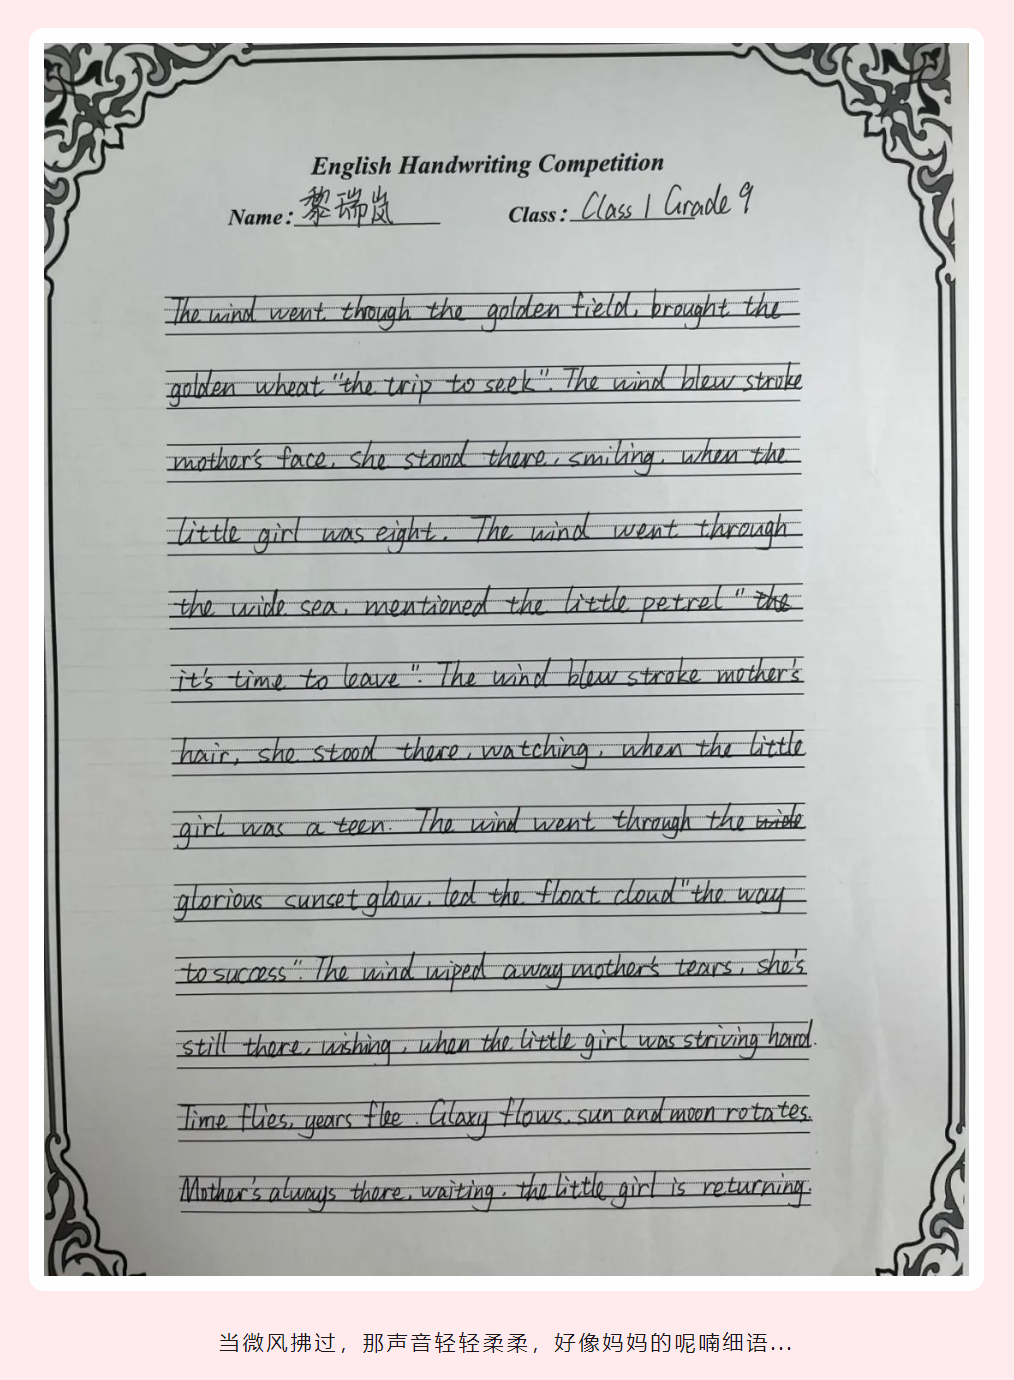 English Handwriting Competition
Name: 黎瑞岚 Class: Class 1 Grade 9
The wind went though the golden field, brought the
golden wheat "the trip to seek". The wind blew stroke
mother's face, she stood there, smiling, when the
little girl was eight. The wind went through
the wide sea, mentioned the little petrel " the
it's time to leave". The wind blew stroke mother's
hair, she stood there, watching, when the little
girl was a teen. The wind went through the wide
glorious sunset glow, led the float cloud "the way
to success". The wind wiped away mother's tears, she's
still there, wishing, when the little girl was striving hard.
Time flies, years flee. Glaxy flows, sun and moon rotates.
Mother's always there, waiting, the little girl is returning.
当微风拂过，那声音轻轻柔柔，好像妈妈的呢喃细语...